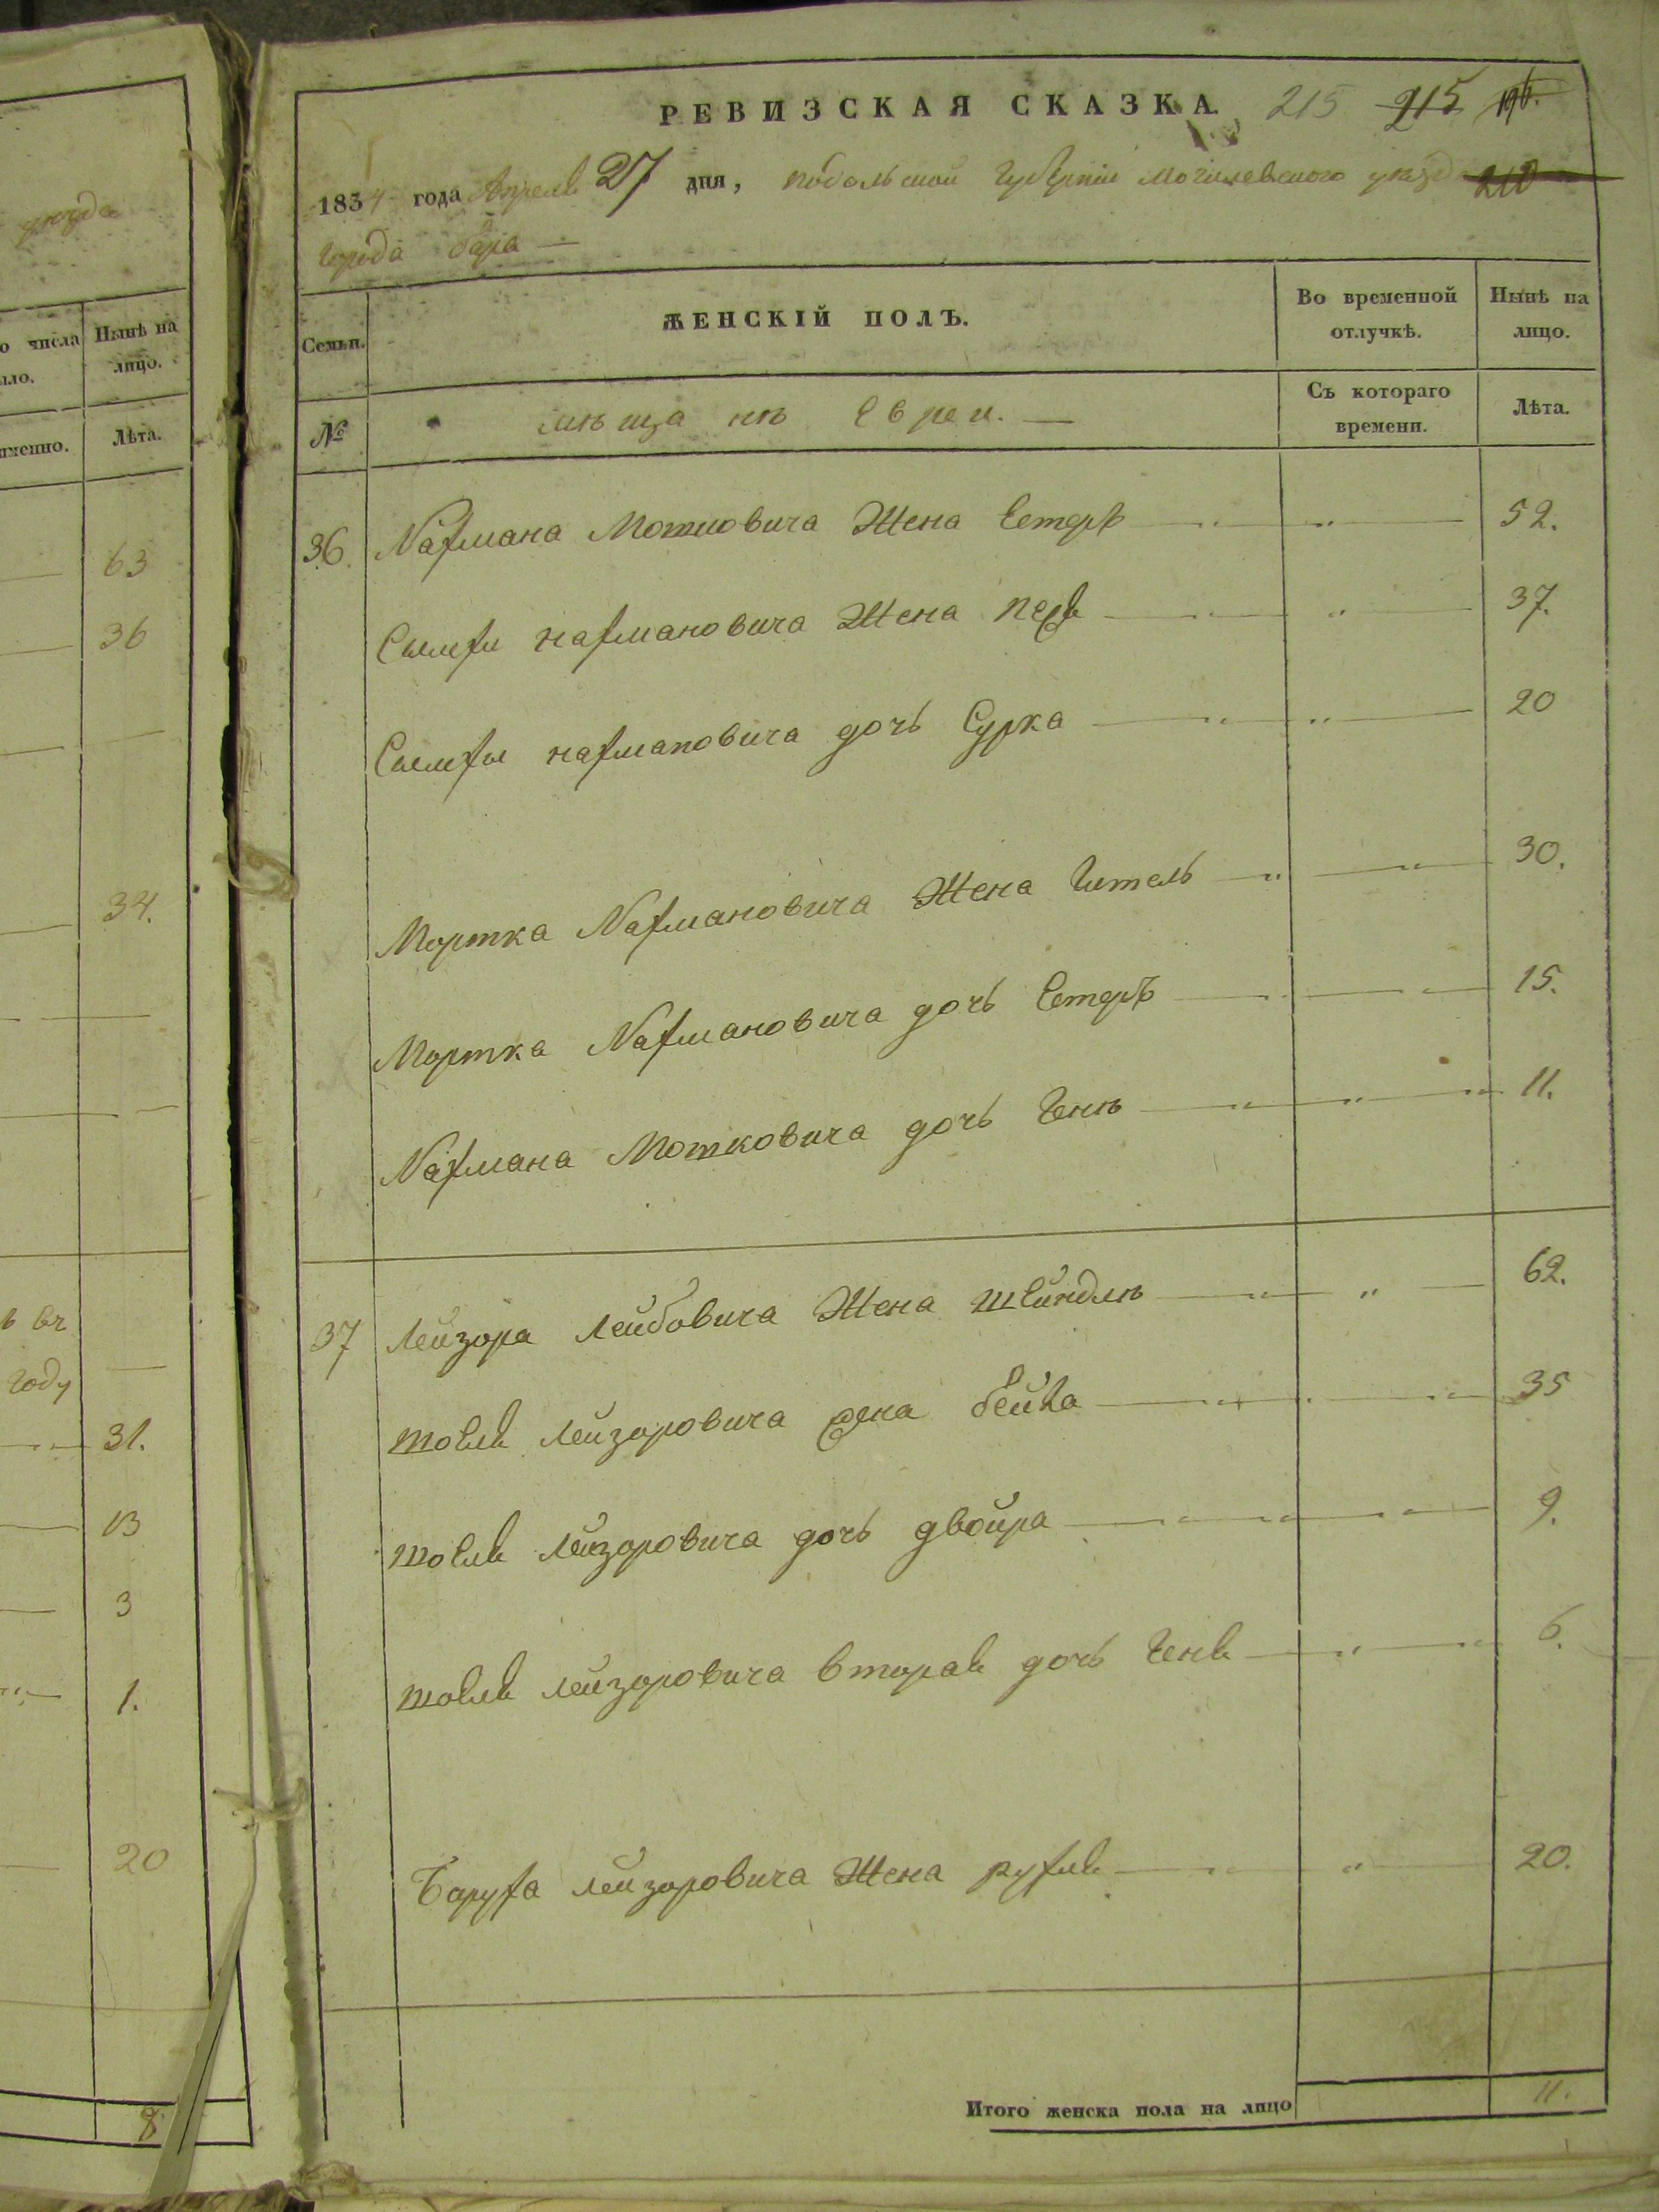 уезда
о числа
ыло.
Нынѣ на
лицо.
именно.
Лѣта.
63
36
34.
въ
году
31.
13
3
1.
20
8
РЕВИЗСКАЯ СКАЗКА. 215 215
1834 года Апреля 27 дня, подольской губернии могилевского уезда 210
города бара —
Семьи.
ЖЕНСКІЙ ПОЛЪ.
Во временной
отлучкѣ.
Нынѣ на
лицо.
№
мѣщанѣ Евреи. —
Съ котораго
времени.
Лѣта.
36. Нахмана Мотковича Жена Естеръ — " — " — 52.
нахмановича Жена перля — " — " — 37.
нахмановича дочь Сурка — " — " — 20
Мортка Нахмановича Жена Гитель — " — " — 30.
Мортка Нахмановича дочь Естеръ — " — " — 15.
Нахмана Мотковича дочь Генѣ — " — " — " — 11.
37 Лейзора Лейбовича Жена швиндлѣ — " — " — 62.
товля Лейзоровича жена бейла — " — " — 35
товля лейзоровича дочь двойра — " — " — " — 9.
товля лейзоровича вторая дочь Геня — " — " — 6.
Баруха лейзоровича Жена рухля — " — " — 20.
Итого женска пола на лицо 11.